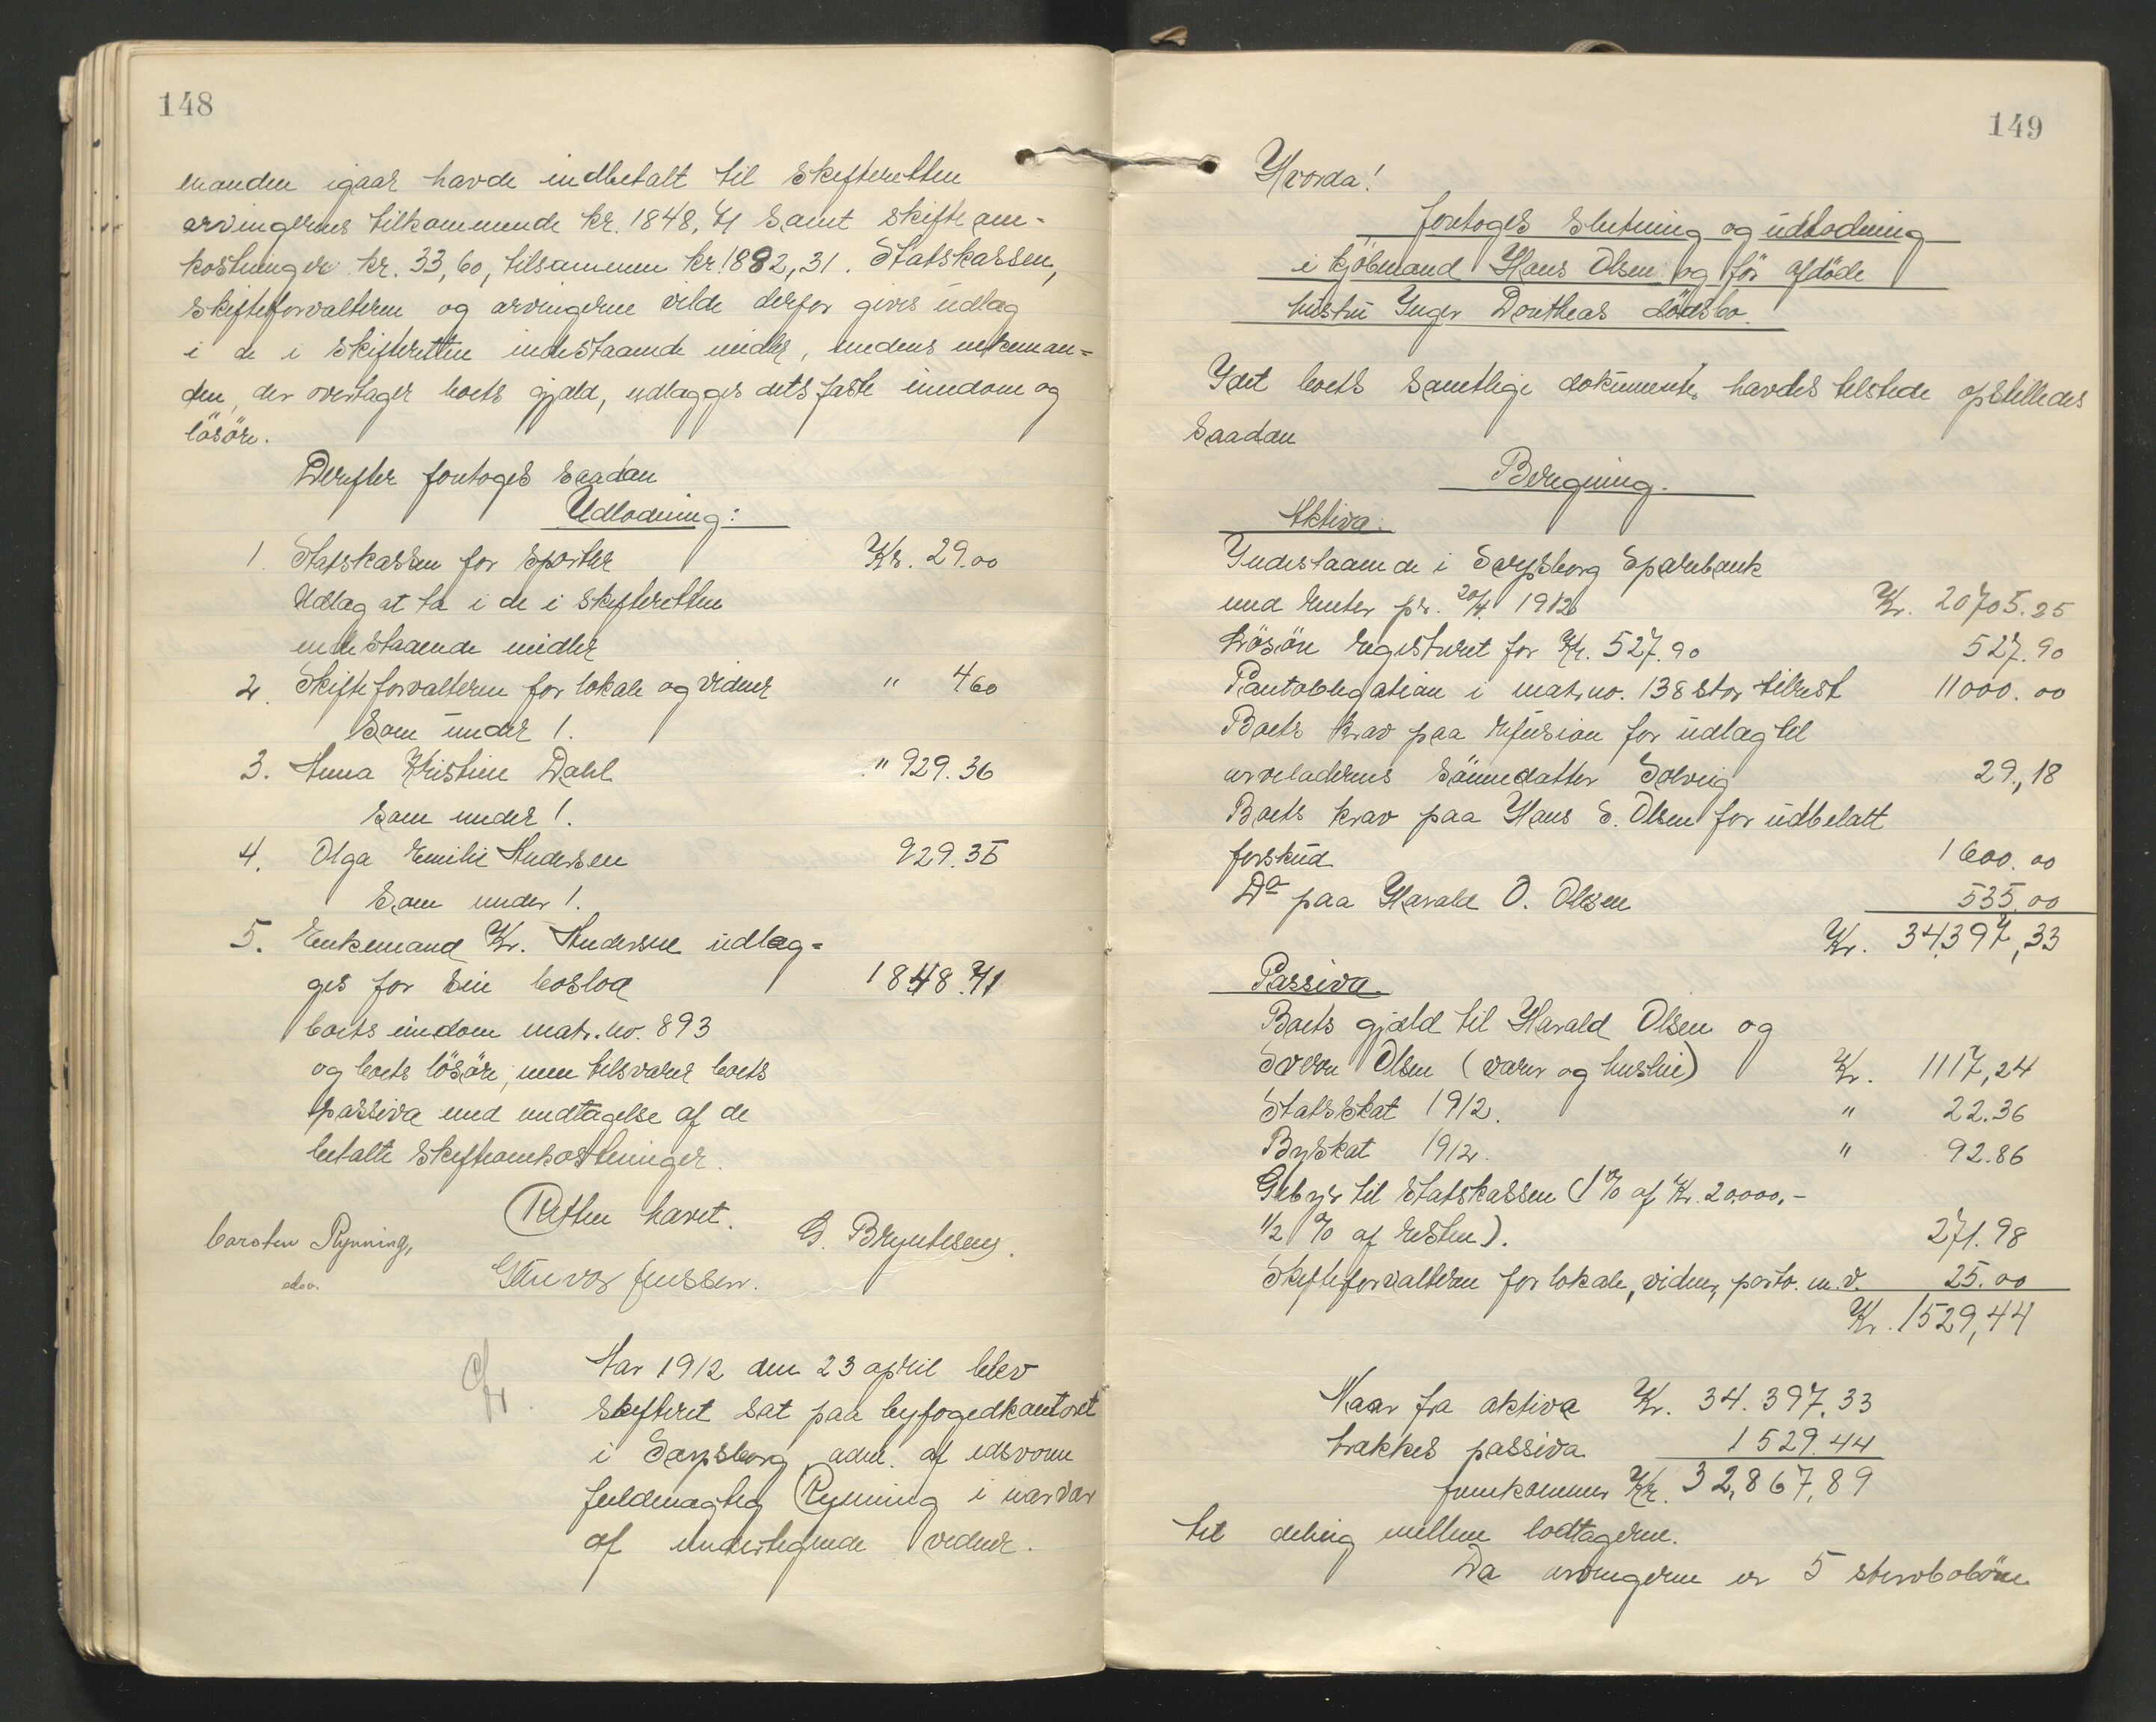 148
manden igaar havde indbetalt til skifteretten
arvingernes tilkommende kr. 1848,71 samt skifteom=
kostninger kr. 33,60, tilsammen kr. 1882,31. Statskassen,
skifteforvalteren og arvingerne vilde derfor gives udlæg
i de i skifteretten indestaaende midler, medens enkeman=
den, der overtager boets gjæld, udlægges dets faste eiendom og
løsøre.
Derefter foretoges saadan
Udlodning:
1. Statskassen for sportler Kr. 29.00
Udlæg at ta i de i skifteretten
indestaaende midler
2. Skifteforvalteren for lokale og vidner " 4 60
Som under 1.
3. Anna Kristine Dahl " 929.36
Som under 1.
4. Olga Emilie Andersen 929.35
Som under 1.
5. Enkemand Kr. Andersen udlæg=
ges for sin boslod 1848.71
boets eiendom matr. no. 893
og boets løsøre, men tilsvarer boets
passiva med undtagelse af de
betalte skifteomkostninger.
Retten hævet.
Carsten Rynning, G. Bryntesen.
edsv. Gunvor Jenssen.
Aar 1912 den 23 april blev
skifteret sat paa byfogedkontoret
i Sarpsborg adm. af edsvoren
fuldmægtig Rynning i nærvær
af undertegnede vidner.
149
Hvorda!
foretoges slutning og udlodning
i kjøbmand Hans Olsen og før afdøde
hustru Inger Dortheas dødsbo.
Idet boets samtlige dokumenter havdes tilstede opstilledes
saadan
Beregning.
Aktiva.
Indestaaende i Sarpsborg Sparebank
med renter pr. 20/4 1912 Kr. 20705.25
Løsøre registreret for Kr. 527.90 527.90
Pantobligation i matr. no. 138 stor tilrest 11000.00
Boets krav paa refusion for udlæg til
arveladerens sønnedatter Solveig 29.,18
Boets krav paa Hans S. Olsen for udbetalt
forskud 1600.00
Do paa Harald O. Olsen 535.00
Kr. 34.397,33
Passiva.
Boets gjæld til Harald Olsen og
Sverre Olsen (varer og husleie) Kr. 1117,24
Statsskat 1912. " 22.36
Byskat 1912. " 92.86
Gebyr til statskassen (1 % af Kr. 20.000,-
1/2 % af resten). 271.98
Skifteforvalteren for lokale, vidner, porto. m.v. 25.00
Kr. 1529,44
Naar fra aktiva Kr. 34.397.33
trækkes passiva 1529.44
fremkommer Kr. 32,867,89
til deling mellem lodtagerne.
Da arvingerne er 5 stervbobörn